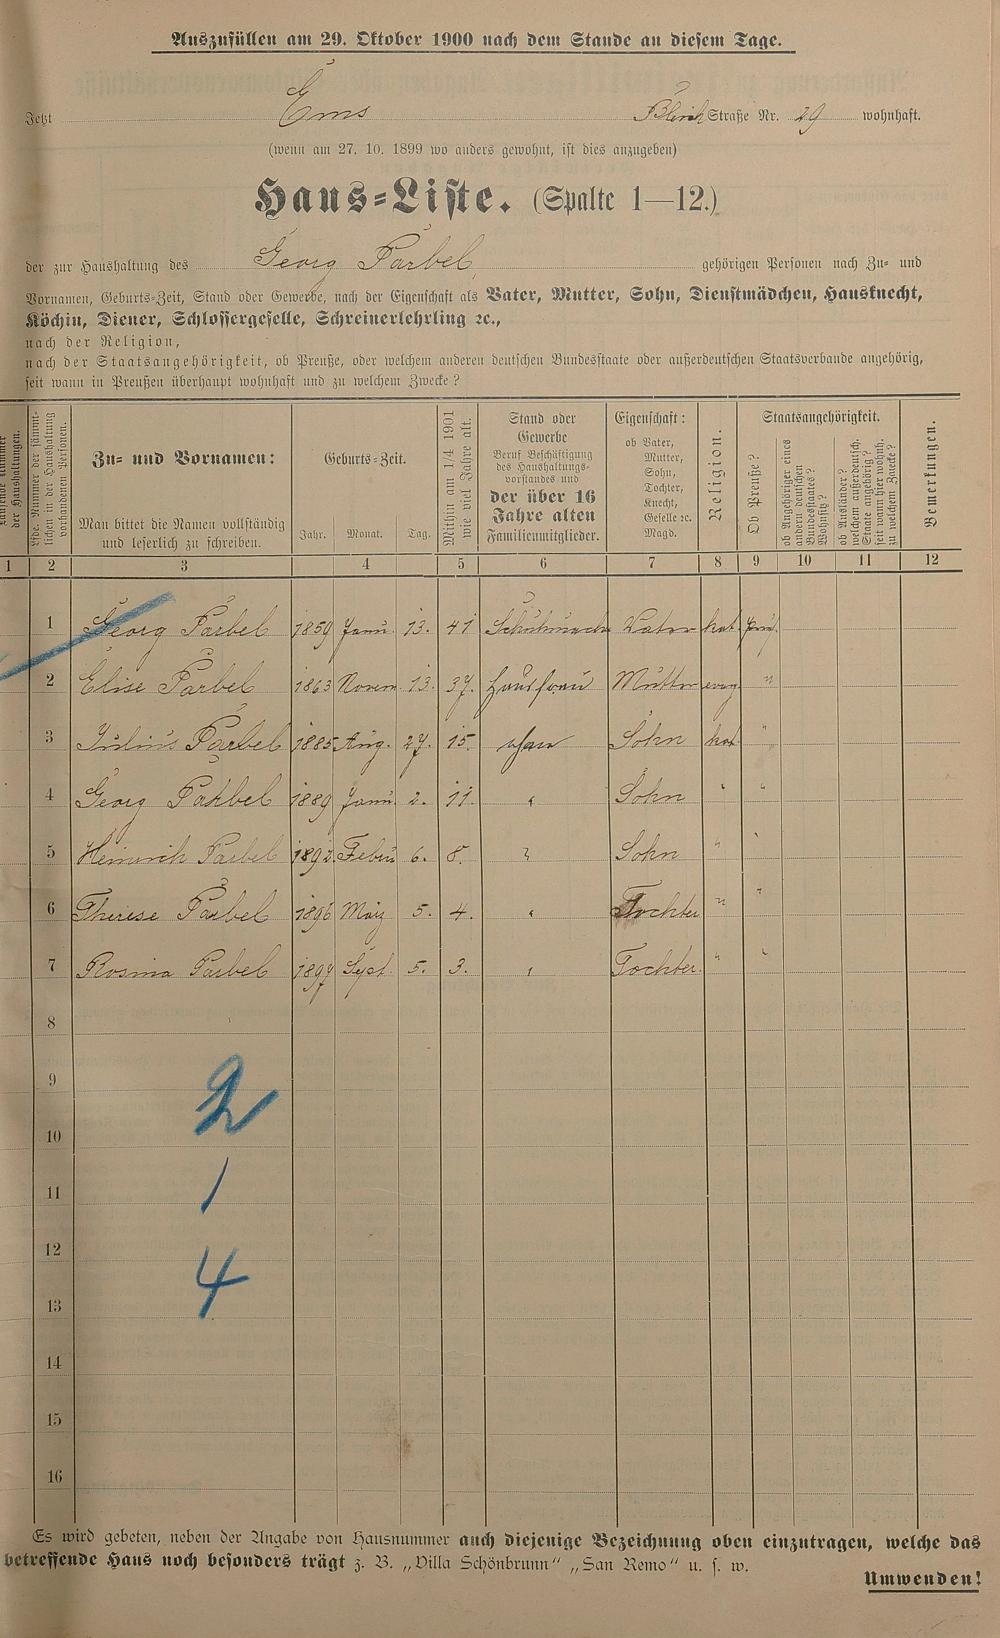 Auszufüllen am 29. Oktober 1900 nach dem Stande an diesem Tage.
Jetzt Ems Straße Nr. 29 wohnhaft.
(wenn am 27. 10. 1899 wo anders gewohnt, ist dies anzugeben)
Haus-Liste. (Spalte 1—12.)
der zur Haushaltung des Georg Parbel gehörigen Personen nach Zu- und
Vornamen, Geburts-Zeit, Stand oder Gewerbe, nach der Eigenschaft als Vater, Mutter, Sohn, Dienstmädchen, Hausknecht,
Köchin, Diener, Schlossergeselle, Schreinerlehrling ꝛc.,
nach der Religion,
nach der Staatsangehörigkeit, ob Preuße, oder welchem anderen deutschen Bundesstaate oder außerdeutschen Staatsverbande angehörig,
seit wann in Preußen überhaupt wohnhaft und zu welchem Zwecke?
Nummer
der Haushaltungen.
Lfde. Nummer der sämmt-
lichen in der Haushaltung
vorhandenen Personen.
Zu- und Vornamen:
Man bittet die Namen vollständig
und leserlich zu schreiben.
Geburts-Zeit.
Jahr. Monat. Tag.
Mithin am 1/4 1901
wie viel Jahre alt.
Stand oder
Gewerbe
Beruf Beschäftigung
des Haushaltungs-
vorstandes und
der über 16
Jahre alten
Familienmitglieder.
Eigenschaft:
ob Vater,
Mutter,
Sohn,
Tochter,
Knecht,
Geselle ꝛc.
Magd.
Religion.
Staatsangehörigkeit.
Ob Preuße?
ob Angehöriger eines
andern deutschen
Bundesstaates?
Wohnsitz?
ob Ausländer?
welchem außerdeutsch.
Staate angehörig?
seit wann hier wohnh.
zu welchem Zwecke?
Bemerkungen.
1 2 3 4 5 6 7 8 9 10 11 12
1 Georg Parbel 1859 Janu. 13. 41 Schuhmach Vater kat. preuß.
2 Elise Parbel 1863 Novem 13. 37. Hausfrau Mutter evag "
3 Julius Parbel 1885 Aug. 27. 15. Sohn kat "
4 Georg Parbel 1889 Janu. 2. 11. " Sohn " "
5 Heinrich Parbel 1892. Febru 6. 8. " Sohn " "
6 Therese Parbel 1896 März 5. 4. " Tochter " "
7 Rosina Parbel 1897 Sept. 5. 3. " Tochter. " "
8
9
2
10
11
1
12
4
13
14
15
16
Es wird gebeten, neben der Angabe von Hausnummer auch diejenige Bezeichnung oben einzutragen, welche das
betreffende Haus noch besonders trägt z. B. „Villa Schönbrunn“ „San Remo“ u. s. w.
Umwenden!